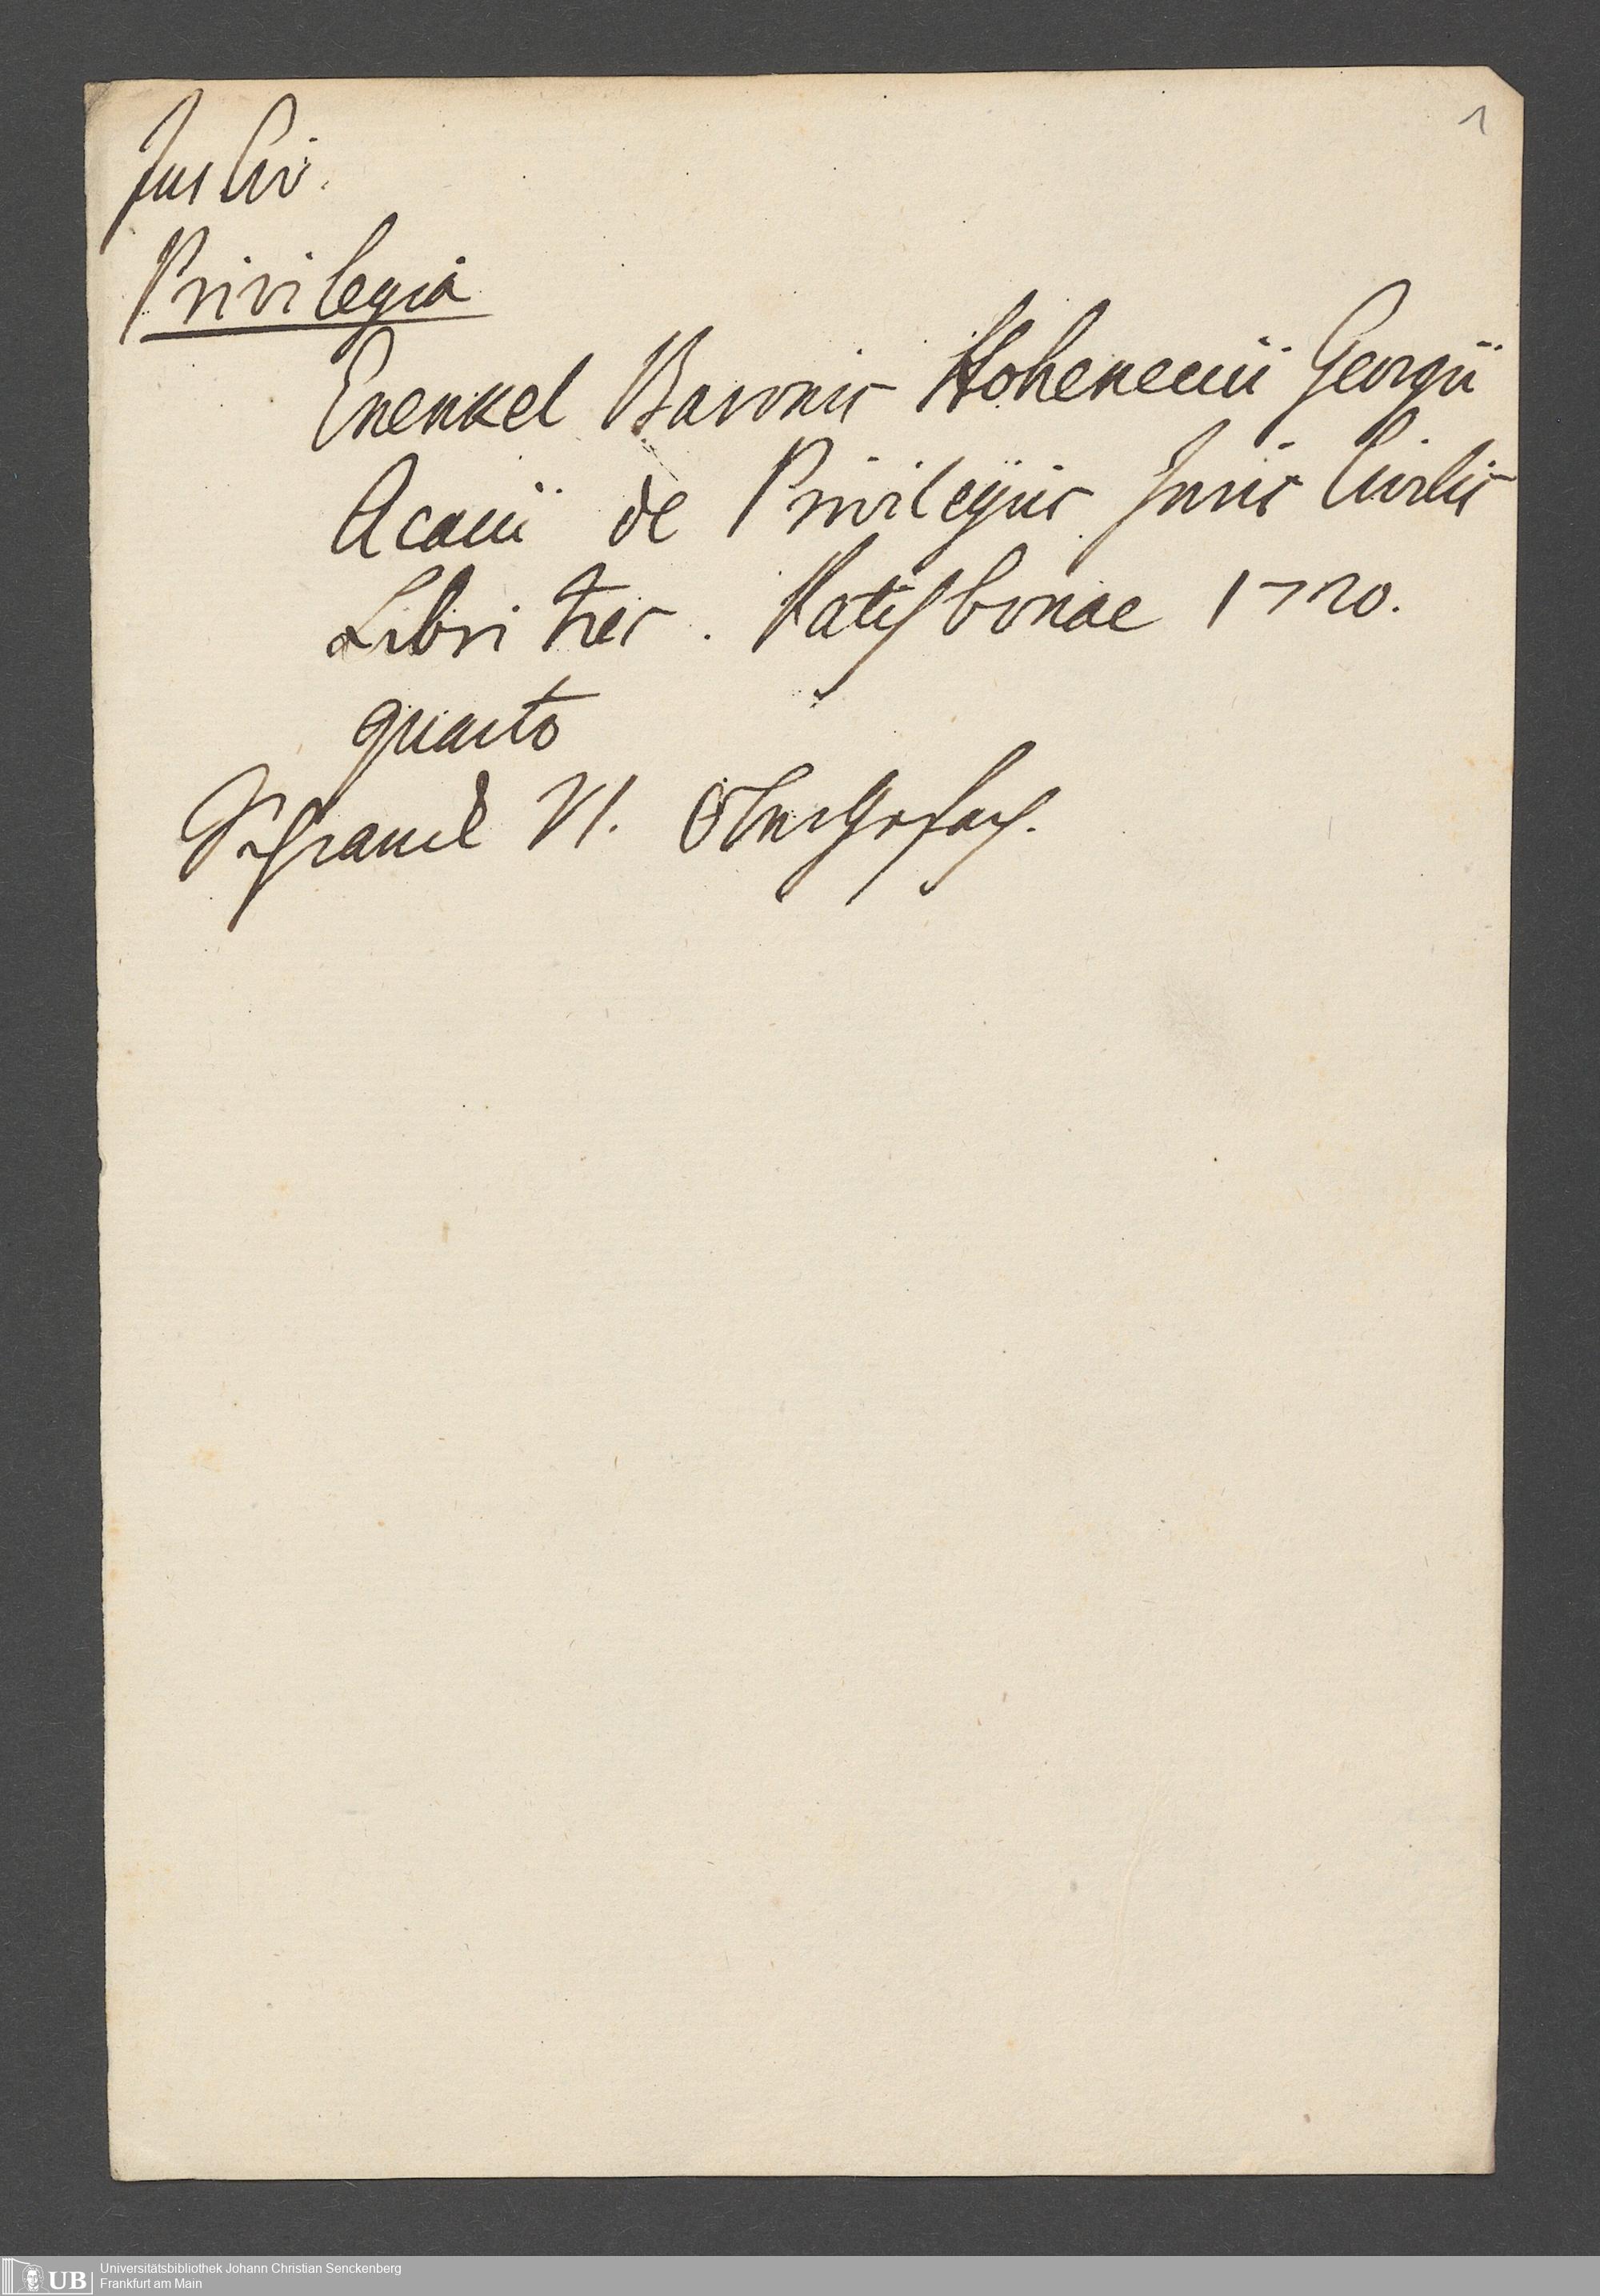 1
Jus Civ.
Privilegia
Enenkel Baronis Hoheneccii Georgii
Acacii de Privilegiis Juris Civilis
Libri tres. Ratisbonae 1720.
quarto
Schranck VI. Obergefach.
Universitätsbibliothek Johann Christian Senckenberg
UB Frankfurt am Main